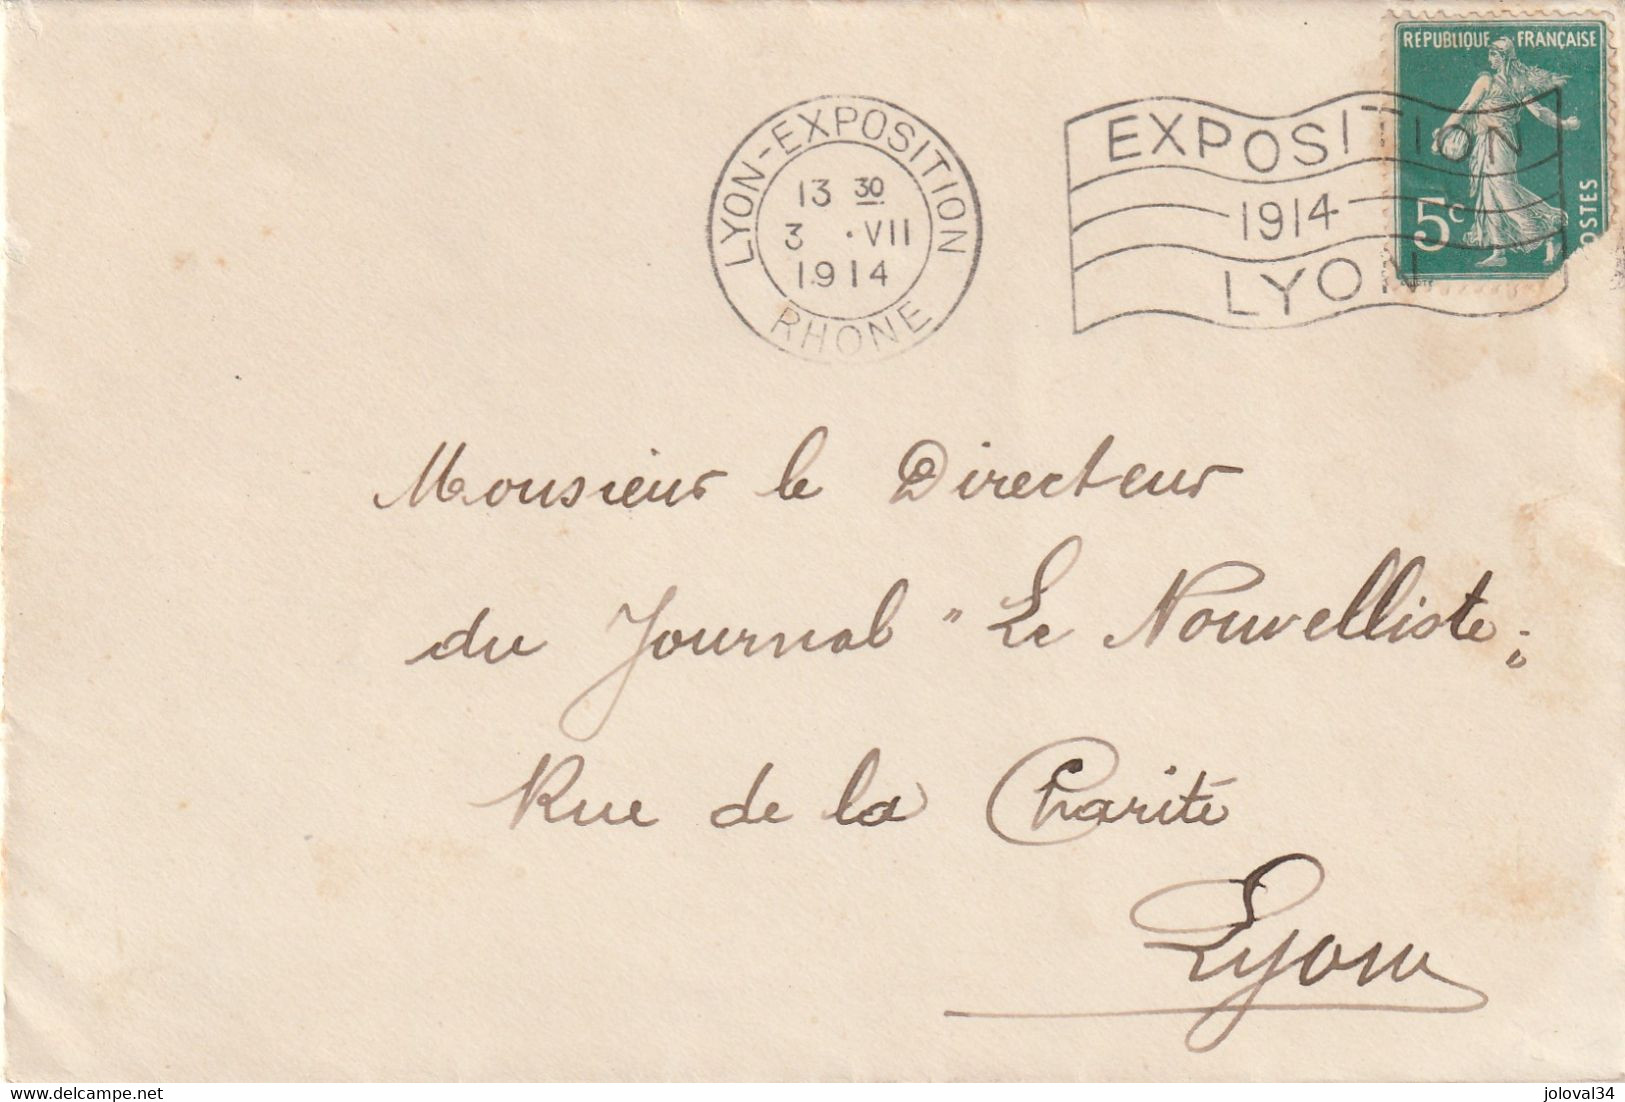 RÉPUBLIQUE FRANÇAISE
5c
POSTES
LYON-EXPOSITION
13 30
3 . VII
1914
RHONE
EXPOSITION
1914
LYON
Monsieur le Directeur
du Journal "Le Nouvelliste"
Rue de la Charité
Lyon
www.delcampe.net
joloval34